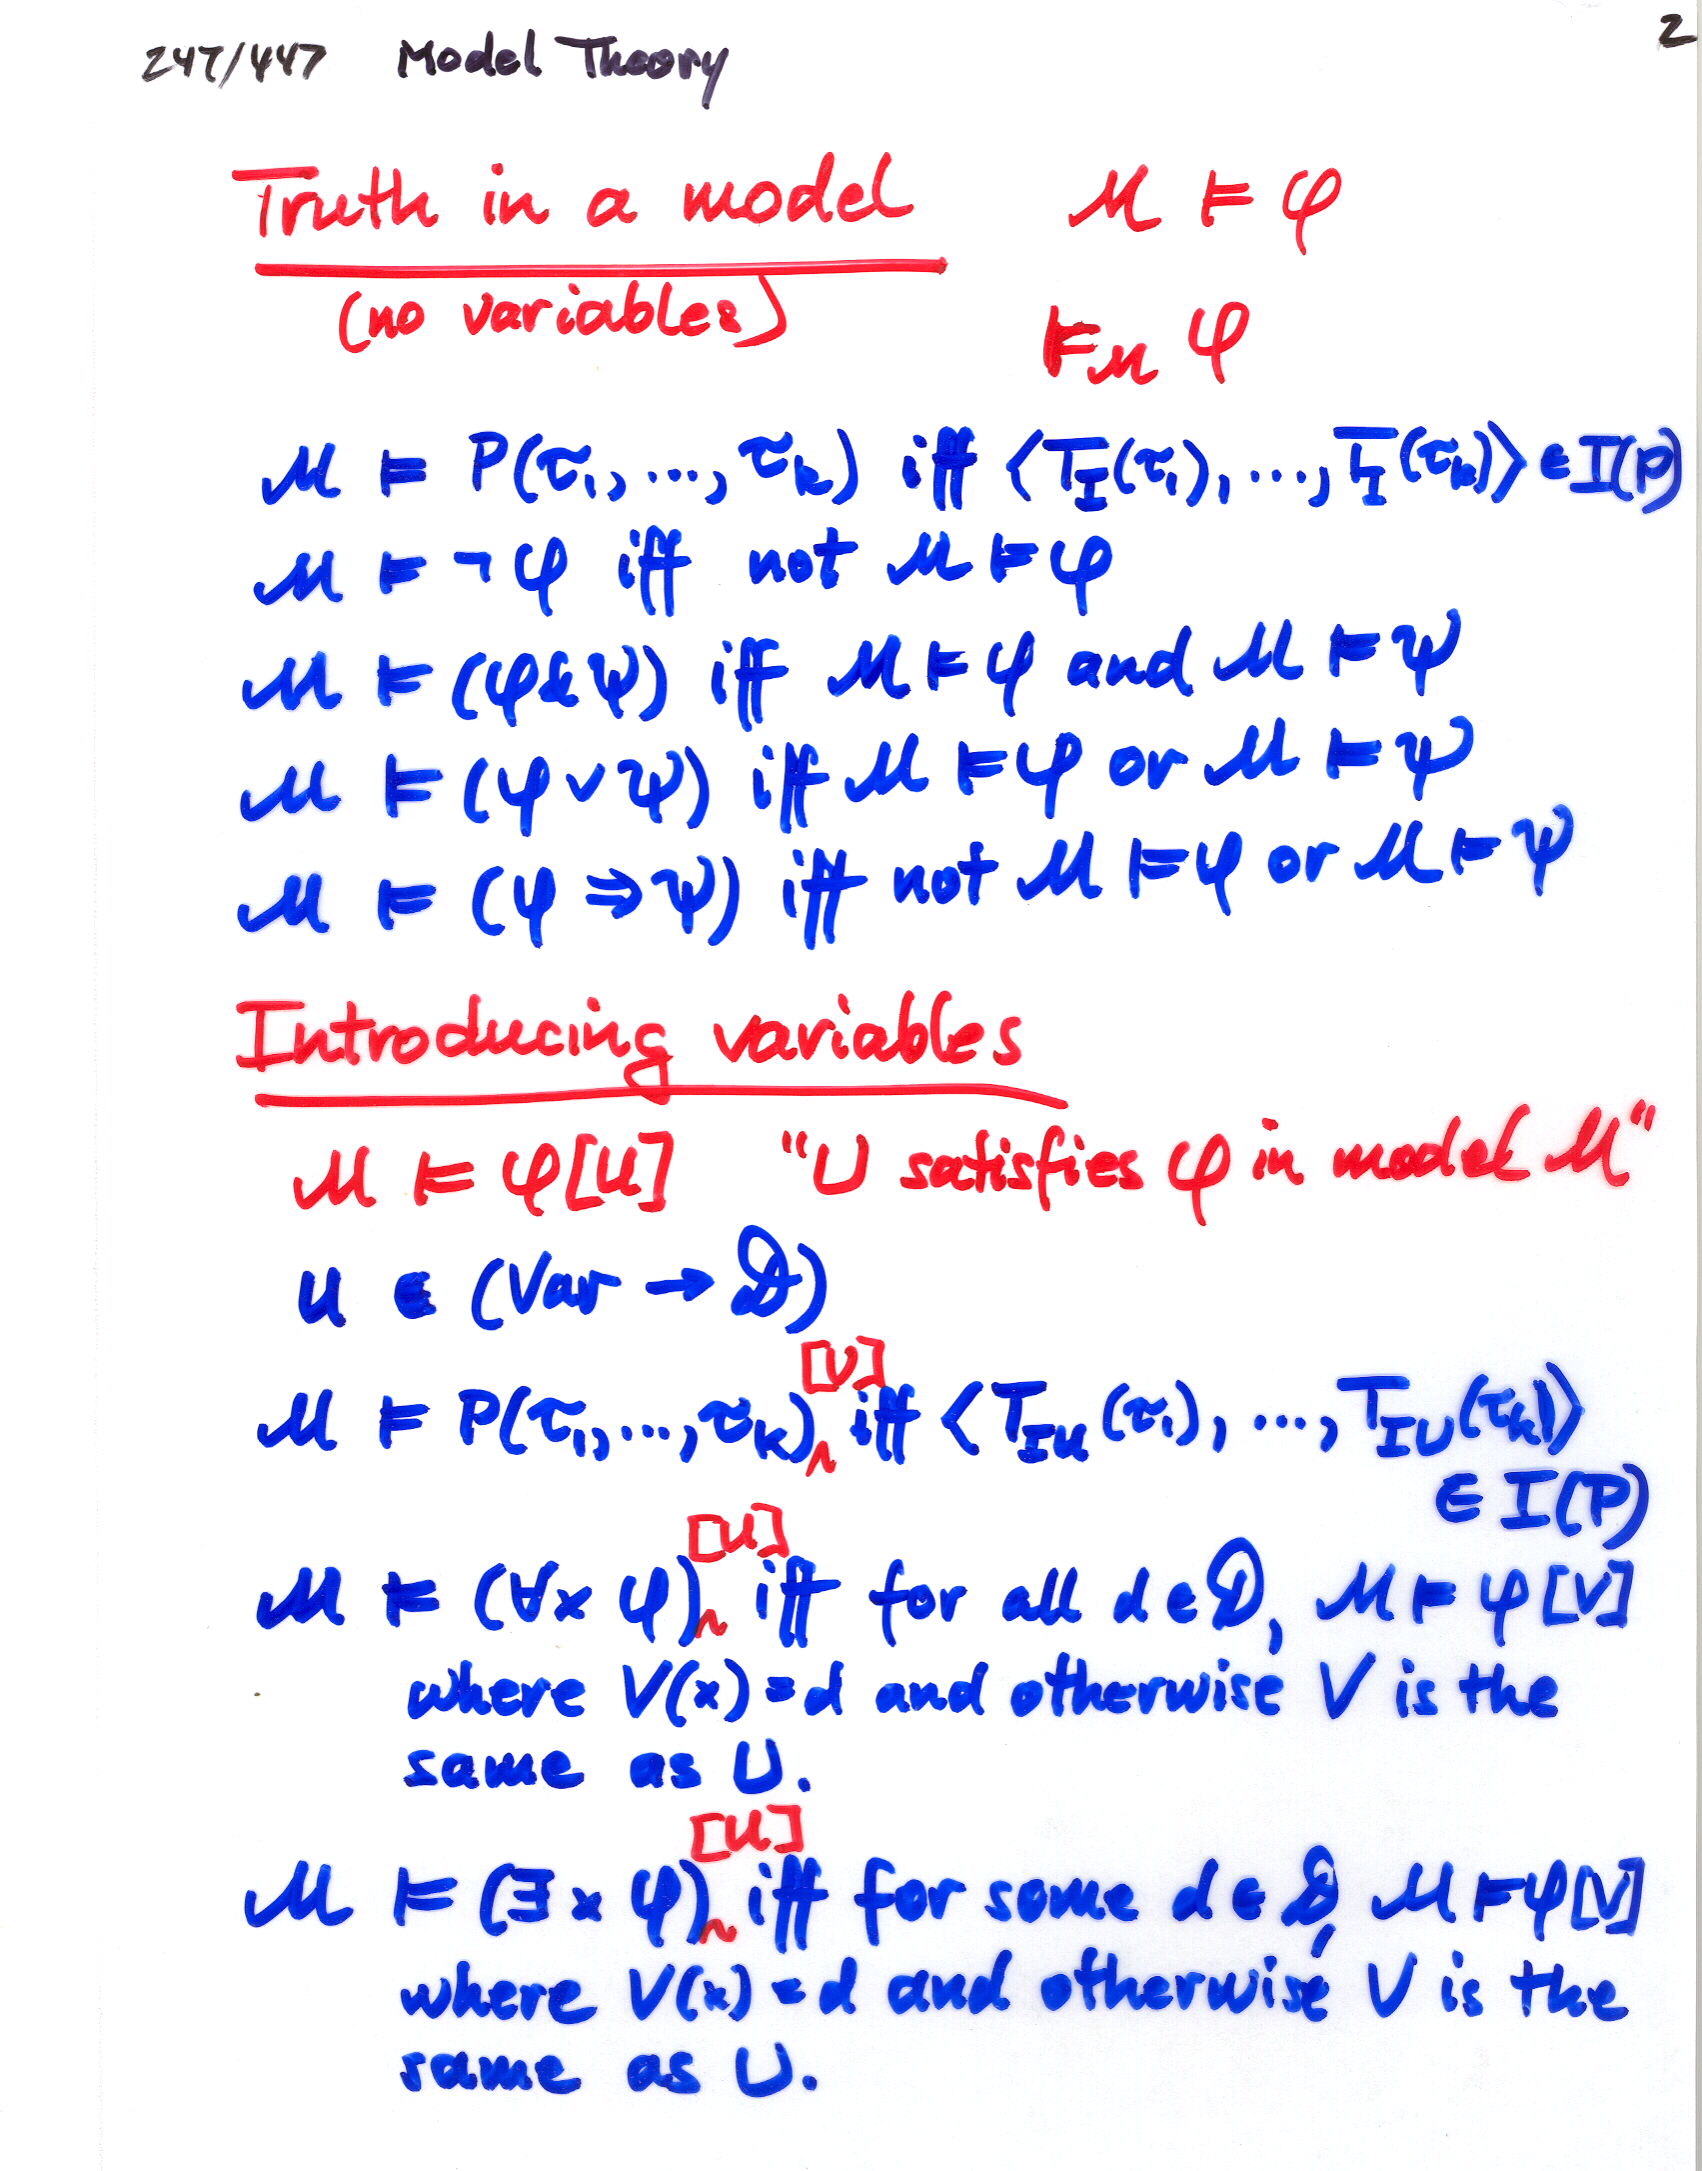 247/447 Model Theory 2
Truth in a model M ⊨ φ
(no variables) ⊨_M φ
M ⊨ P(τ₁, ..., τ_k) iff ⟨T_I(τ₁), ..., T_I(τ_k)⟩ ∈ I(P)
M ⊨ ¬φ iff not M ⊨ φ
M ⊨ (φ & ψ) iff M ⊨ φ and M ⊨ ψ
M ⊨ (φ ∨ ψ) iff M ⊨ φ or M ⊨ ψ
M ⊨ (φ ⇒ ψ) iff not M ⊨ φ or M ⊨ ψ
Introducing variables
M ⊨ φ[U] "U satisfies φ in model M"
U ∈ (Var → D)
M ⊨ P(τ₁, ..., τ_k)[U] iff ⟨T_IU(τ₁), ..., T_IU(τ_k)⟩
∈ I(P)
M ⊨ (∀x φ)[U] iff for all d ∈ D, M ⊨ φ[V]
where V(x) = d and otherwise V is the
same as U.
M ⊨ (∃x φ)[U] iff for some d ∈ D, M ⊨ φ[V]
where V(x) = d and otherwise V is the
same as U.